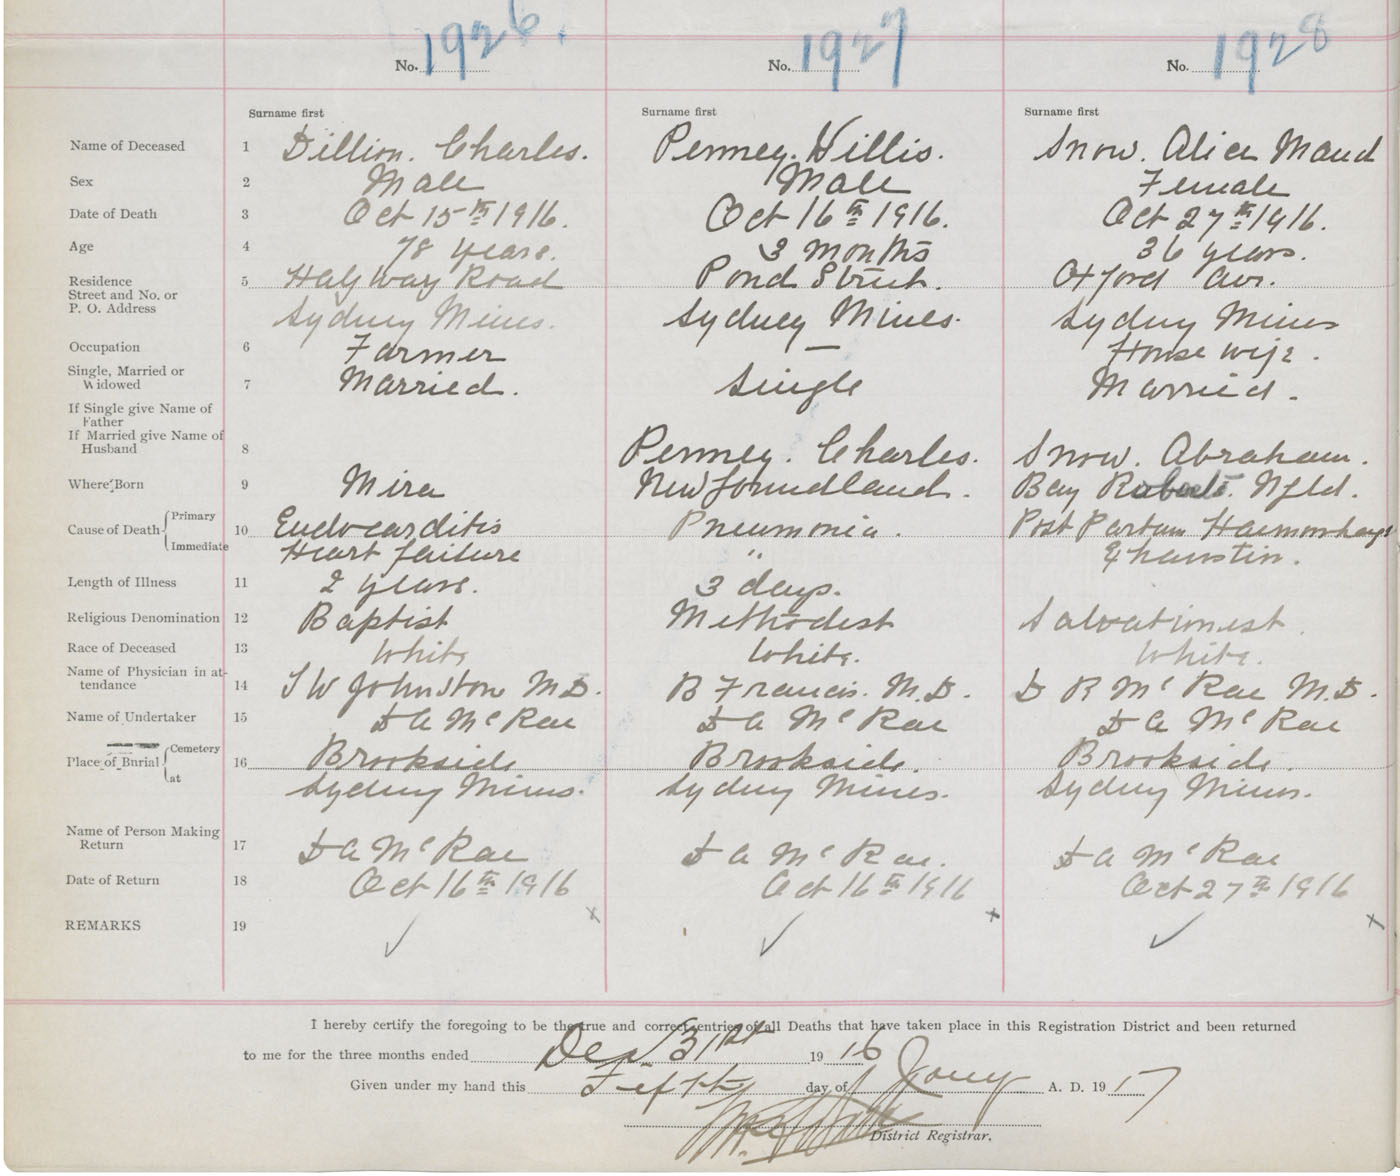 No. 1926. No. 1927 No. 1928
Surname first Surname first Surname first
Name of Deceased 1 Dillion. Charles. Penney. Willis. Snow. Alice Maud
Sex 2 Male Male Female
Date of Death 3 Oct 15th 1916. Oct 16th 1916. Oct 27th 1916.
Age 4 78 years. 3 months 36 years.
Residence 5 Halfway Road Pond Street. Oxford Ave.
Street and No. or
P. O. Address Sydney Mines. Sydney Mines. Sydney Mines
Occupation 6 Farmer — House wife.
Single, Married or
Widowed 7 Married. Single Married.
If Single give Name of
Father
If Married give Name of
Husband 8 Penney. Charles. Snow. Abraham.
Where Born 9 Mira Newfoundland. Bay Roberts. Nfld.
Cause of Death { Primary 10 Endocarditis Pneumonia. Post Partum Haemorrhage
Immediate Heart failure " Exhaustin.
Length of Illness 11 2 years. 3 days.
Religious Denomination 12 Baptist Methodist Salvationist.
Race of Deceased 13 White White. White.
Name of Physician in at-
tendance 14 J W Johnston M.D. B Francis. M.D. D R McRae M.D.
Name of Undertaker 15 D A McRae D A McRae D A McRae
Place of Burial { Cemetery 16 Brookside Brookside. Brookside.
at Sydney Mines. Sydney Mines. Sydney Mines.
Name of Person Making
Return 17 D A McRae D A McRae. D A McRae
Date of Return 18 Oct 16th 1916 Oct 16th 1916 Oct 27th 1916
REMARKS 19 ✓ x ✓ x ✓ x
I hereby certify the foregoing to be the true and correct entries of all Deaths that have taken place in this Registration District and been returned
to me for the three months ended Dec. 31st 1916
Given under my hand this Fifth day of Jany A. D. 1917
District Registrar.